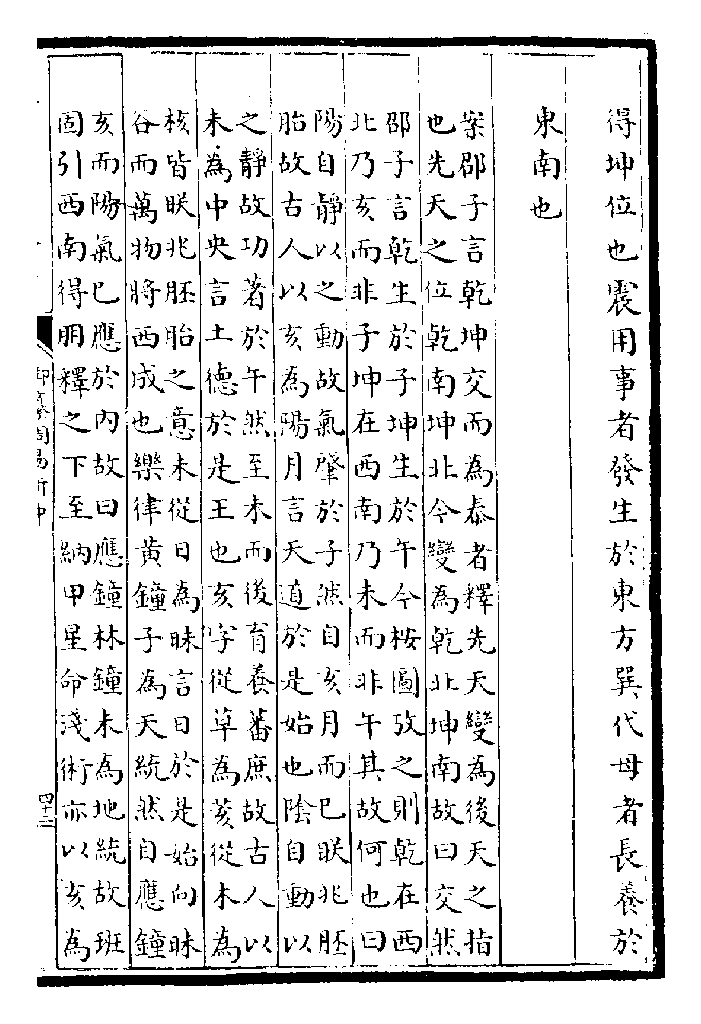 得坤位也震用事者發生於東方巽代母者長養於
東南也
案邵子言乾坤交而為泰者釋先天變為後天之指
也先天之位乾南坤北今變為乾北坤南故曰交然
邵子言乾生於子坤生於午今按圖攷之則乾在西
北乃亥而非子坤在西南乃未而非午其故何也曰
陽自靜以之動故氣肇於子然自亥月而已眹兆胚
胎故古人以亥為陽月言天道於是始也陰自動以
之靜故功著於午然至未而後育養蕃庶故古人以
未為中央言土德於是王也亥字從草為荄從木為
核皆眹兆胚胎之意未從日為昧言日於是始向昧
谷而萬物將西成也樂律黃鐘子為天統然自應鐘
亥而陽氣已應於內故曰應鐘林鐘未為地統故班
固引西南得朋釋之下至納甲星命淺術亦以亥為
御纂周易折中
四十二